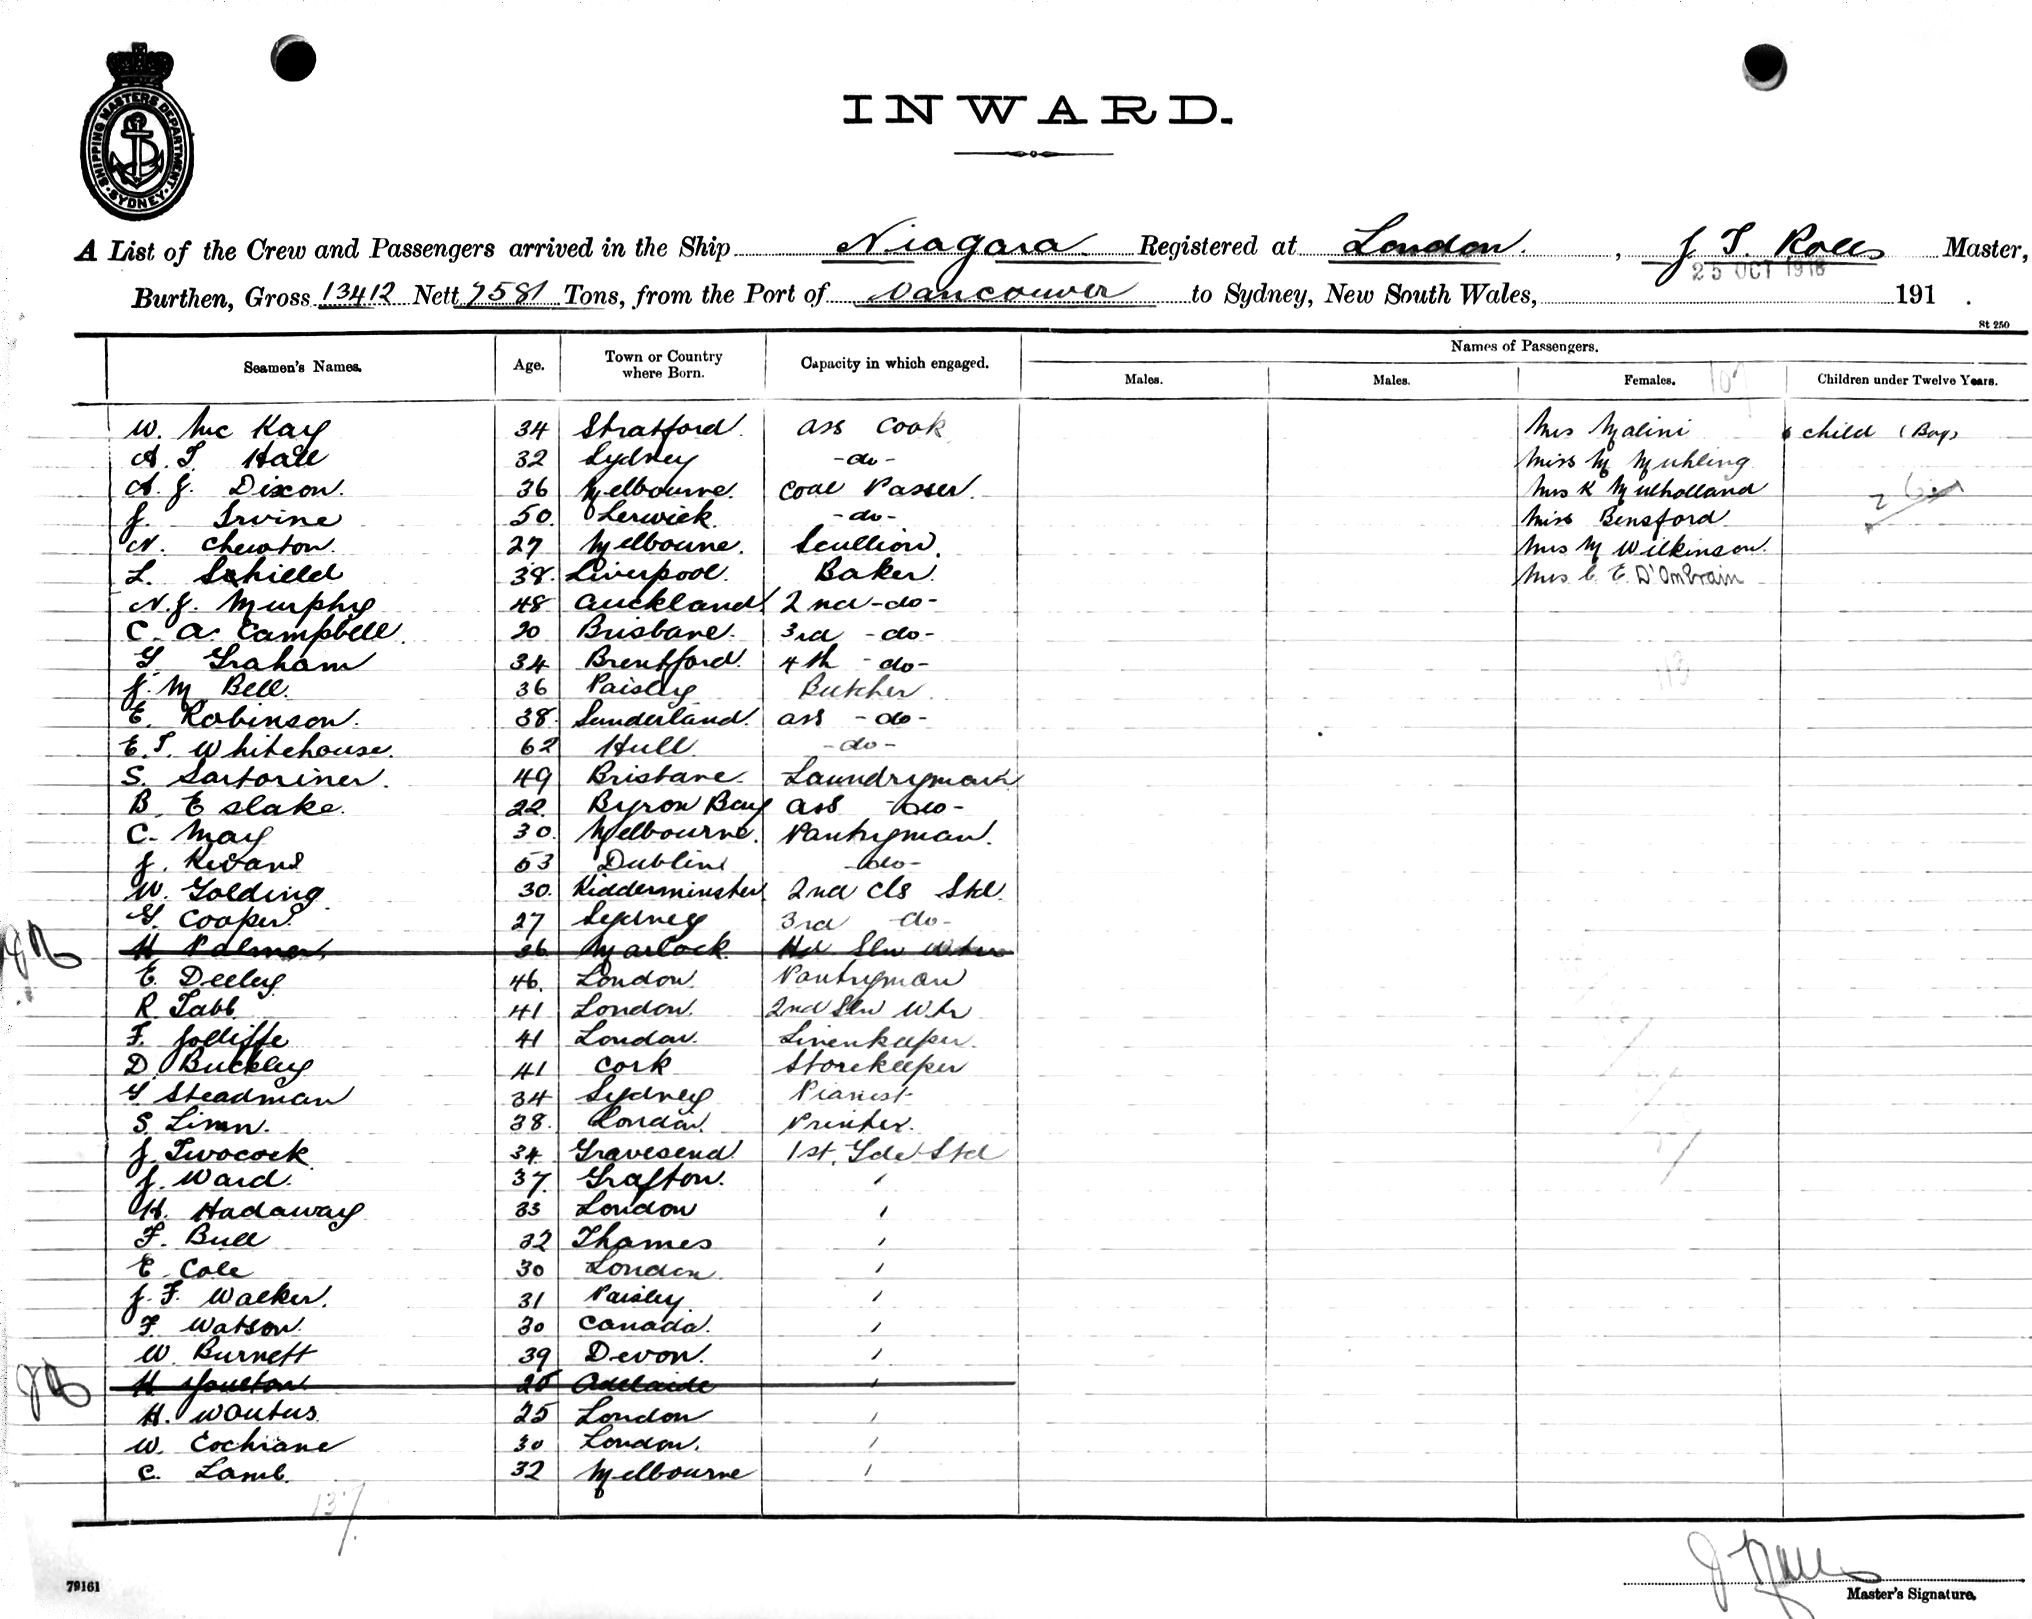 SHIPPING MASTERS DEPARTMENT SYDNEY
INWARD.
A List of the Crew and Passengers arrived in the Ship Niagara Registered at London, J T. Rolls Master,
25 OCT 1918
Burthen, Gross 13412 Nett 7581 Tons, from the Port of Vancouver to Sydney, New South Wales, 191 .
St 250
Seamen's Names. Age. Town or Country where Born. Capacity in which engaged. Names of Passengers.
Males. Males. Females. 107 Children under Twelve Years.
W. Mc Kay 34 Stratford. Ass Cook Mrs Malini child (Boy)
A. T. Hall 32 Sydney -do- Miss M Muhling
A. J. Dixon. 36 Melbourne. Coal Passer. Mrs K Mulholland
J. Irvine 50. Lerwick. -do- Miss Bensford
N. Chewton. 27 Melbourne. Scullion. Mrs M Wilkinson.
L. Schilld 38. Liverpool. Baker. Mrs C. E. D'Ombrain
N. J. Murphy 48 Auckland 2nd -do-
C. A. Campbell. 20 Brisbane. 3rd -do-
G. Graham 34 Brentford. 4th -do-
J. M Bell. 36 Paisley Butcher.
E. Robinson. 38. Sunderland. ass -do-
E. T. Whitehouse. 62 Hull -do-
S. Sartoriner. 49 Brisbane. Laundryman
B. E Slake. 22. Byron Bay ass -do-
C. May 30. Melbourne. Pantryman.
J. 53 Dublin -do-
W. Golding 30. Kidderminster. 2nd Cls Std.
G. Cooper. 27 Sydney 3rd -do-
H Palmer 36 Marlock Hd Sln Wtr
E. Deeley 46. London. Pantryman
R Tabb. 41 London. 2nd Sln Wtr
F. Jolliffe 41 London. Linenkeeper.
D. Buckley 41 Cork Storekeeper
G Steadman 34 Sydney Pianist
S. Linn. 38. London. Printer.
J. Twocock 34 Gravesend 1st. Gde Std
J. Ward. 37. Grafton. '
H. Hadaway 33 London '
F. Bull 32 Thames '
E. Cole 30 London. '
J. F. Walker. 31 Paisley. '
F. Watson. 30 Canada. '
W. Burnett 39 Devon. '
H. Joulton 25 Adelaide '
H. 25 London '
W. Cochrane 30 London. '
C. Lamb. 32 Melbourne '
137
79161
Master's Signature.